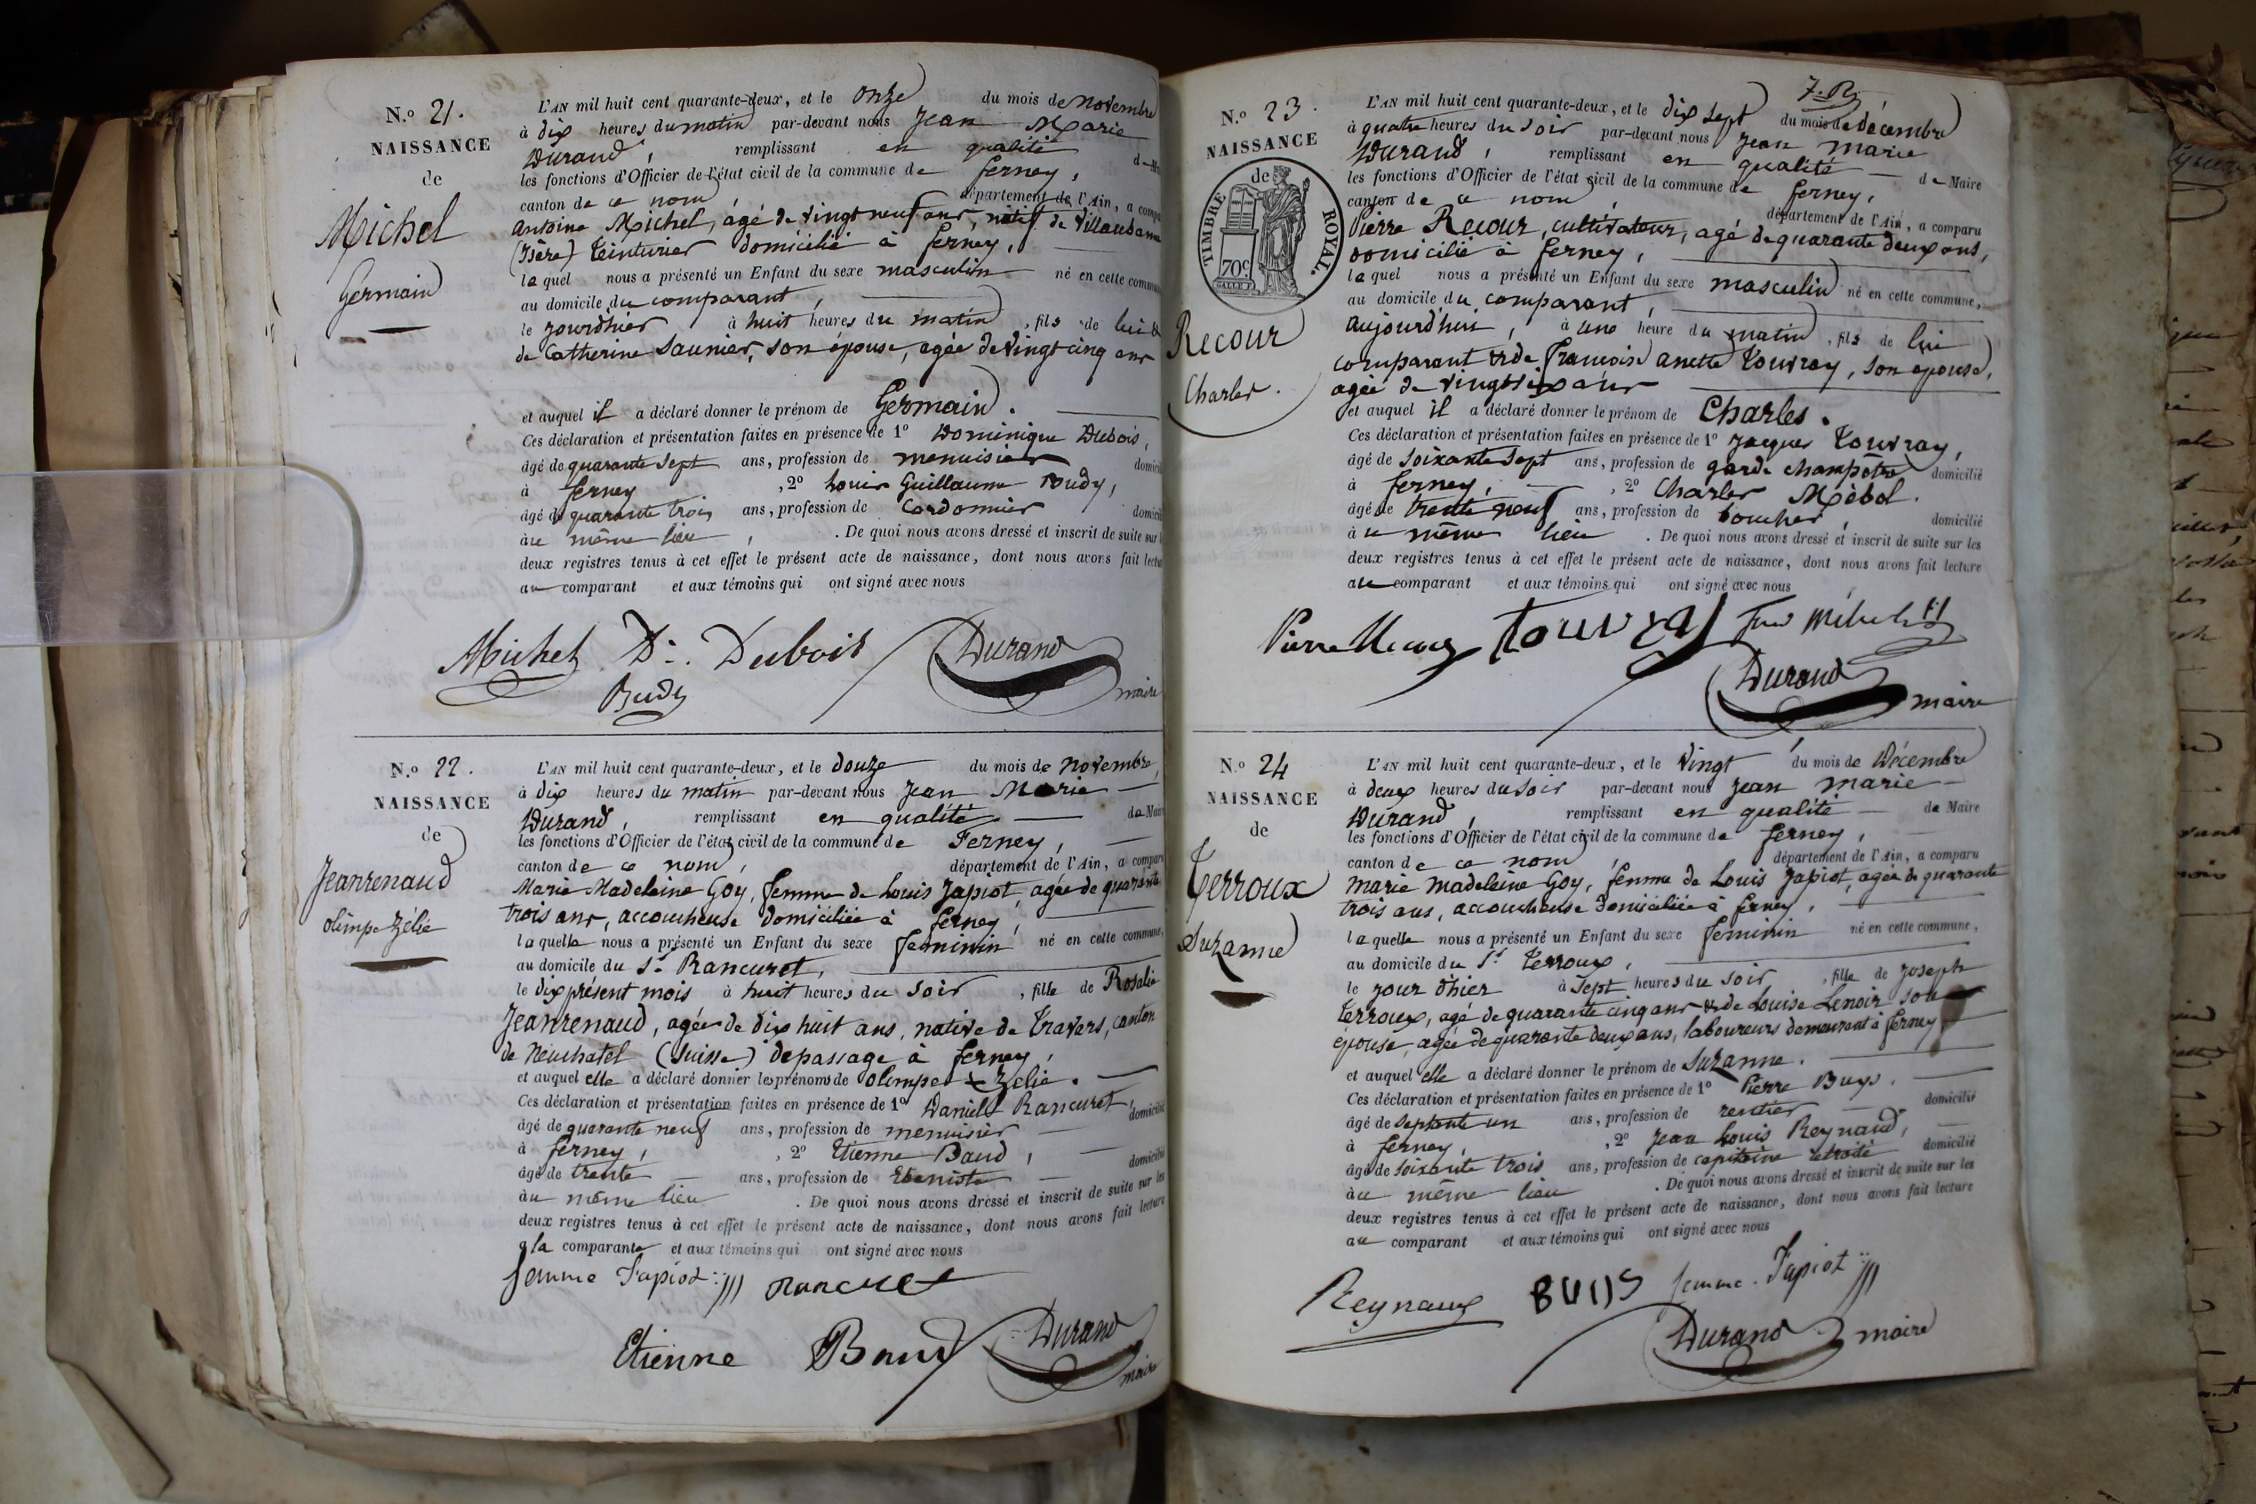 N.o 21.
NAISSANCE
de
Michel
Germain
L'AN mil huit cent quarante-deux, et le onze du mois de novembre
à dix heures du matin par-devant nous Jean Marie
Durand, remplissant en qualité de Mai
les fonctions d'Officier de l'état civil de la commune de ferney,
canton de ce nom département de l'Ain, a compa
antoine Michel, âgé de vingt neuf ans, natif de
(Isère) teinturier domicilié à ferney,
lequel nous a présenté un Enfant du sexe masculin né en cette commun
au domicile du comparant,
le jour d'hier à huit heures du matin, fils de lui &
de Catherine Saunier, son épouse, agée de vingt cinq ans
et auquel il a déclaré donner le prénom de Germain.
Ces déclaration et présentation faites en présence de 1o Dominique Dubois,
âgé de quarante sept ans, profession de menuisier domici
à ferney, 2o Louis Guillaume Budy,
âgé de quarante trois ans, profession de Cordonnier domici
au même lieu, . De quoi nous avons dressé et inscrit de suite sur l
deux registres tenus à cet effet le présent acte de naissance, dont nous avons fait lectu
au comparant et aux témoins qui ont signé avec nous
Michel D. Dubois Durand
Budy maire
N.o 22.
NAISSANCE
de
Jeanrenaud
olimpe Zélie
L'AN mil huit cent quarante-deux, et le douze du mois de novembre,
à dix heures du matin par-devant nous Jean Marie
Durand, remplissant en qualité de Mair
les fonctions d'Officier de l'état civil de la commune de Ferney,
canton de ce nom, département de l'Ain, a comparu
Marie Madeleine Goy, femme de Louis Japiot, agée de quarante
trois ans, accoucheuse domiciliée à ferney,
laquelle nous a présenté un Enfant du sexe féminin né en cette commune,
au domicile du Sr Rancuret,
le dix présent mois à huit heures du soir, fille de Rosalie
Jeanrenaud, agée de dix huit ans, native de Travers, canton
de Neuchatel (Suisse) de passage à ferney,
et auquel elle a déclaré donner les prénoms de olimpe & Zélie.
Ces déclaration et présentation faites en présence de 1o Daniel Rancuret,
âgé de quarante neuf ans, profession de menuisier domicilié
à ferney, 2o Etienne Baud,
âgé de trente ans, profession de Ebeniste domicilié
au même lieu . De quoi nous avons dressé et inscrit de suite sur les
deux registres tenus à cet effet le présent acte de naissance, dont nous avons fait lecture
à la comparante et aux témoins qui ont signé avec nous
femme Japiot Rancuret
Etienne Baud Durand
maire
7. Re
N.o 23.
NAISSANCE
de
TIMBRE ROYAL.
70c
Recour
Charles.
L'AN mil huit cent quarante-deux, et le dix sept du mois de décembre
à quatre heures du soir par-devant nous Jean marie
Durand, remplissant en qualité de Maire
les fonctions d'Officier de l'état civil de la commune de ferney,
canton de ce nom département de l'Ain, a comparu
Pierre Recour, cultivateur, agé de quarante deux ans,
domicilié à ferney,
lequel nous a présenté un Enfant du sexe masculin né en cette commune,
au domicile du comparant,
aujourd'hui, à une heure du matin, fils de lui
comparant & de françoise anette Touvray, son épouse,
agée de vingt six ans
et auquel il a déclaré donner le prénom de Charles.
Ces déclaration et présentation faites en présence de 1o Jacques Touvray,
âgé de soixante sept ans, profession de garde champêtre domicilié
à ferney, 2o Charles Mébol.
âgé de trente neuf ans, profession de boucher, domicilié
au même lieu . De quoi nous avons dressé et inscrit de suite sur les
deux registres tenus à cet effet le présent acte de naissance, dont nous avons fait lecture
au comparant et aux témoins qui ont signé avec nous
Pierre Recour Touvray
Durand
maire
N.o 24
NAISSANCE
de
Terroux
Suzanne
L'AN mil huit cent quarante-deux, et le vingt du mois de Décembre
à deux heures du soir par-devant nous Jean marie
Durand, remplissant en qualité de Maire
les fonctions d'Officier de l'état civil de la commune de ferney,
canton de ce nom département de l'Ain, a comparu
marie madeleine Goy, femme de Louis Japiot, agée de quarante
trois ans, accoucheuse domiciliée à ferney,
laquelle nous a présenté un Enfant du sexe féminin né en cette commune,
au domicile du Sr Terroux,
le jour d'hier à sept heures du soir, fille de Joseph
Terroux, agé de quarante cinq ans & de Louise Lenoir son
épouse, agée de quarante deux ans, laboureurs demeurant à ferney,
et auquel elle a déclaré donner le prénom de Suzanne.
Ces déclaration et présentation faites en présence de 1o Pierre Buys,
âgé de septante un ans, profession de rentier domicilié
à ferney, 2o Jean Louis Reynaud,
âgé de soixante trois ans, profession de capitaine retraité domicilié
au même lieu . De quoi nous avons dressé et inscrit de suite sur les
deux registres tenus à cet effet le présent acte de naissance, dont nous avons fait lecture
au comparant et aux témoins qui ont signé avec nous
Reynaud BUYS femme Japiot
Durand maire